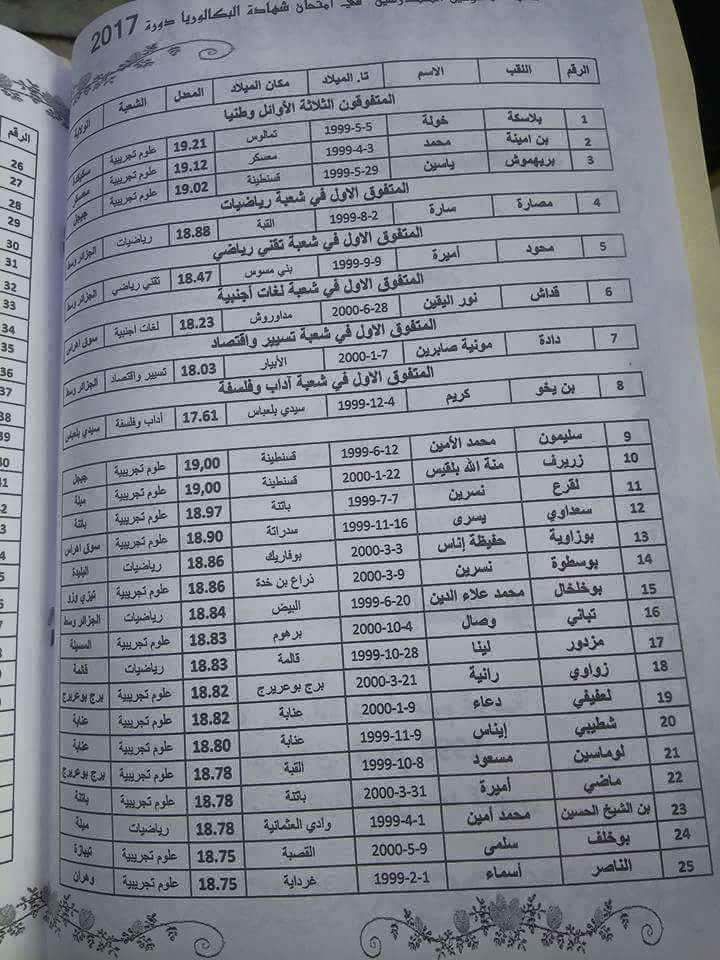 في امتحان شهادة البكالوريا دورة 2017
الرقم اللقب الاسم تا. الميلاد مكان الميلاد المعدل الشعبة الولاية
المتفوقون الثلاثة الأوائل وطنيا
1 بلاسكة خولة 1999-5-5 تمالوس 19.21 علوم تجريبية سكيكدة
2 بن امينة محمد 1999-4-3 معسكر 19.12 علوم تجريبية معسكر
3 بريهموش ياسين 1999-5-29 قسنطينة 19.02 علوم تجريبية جيجل
المتفوق الاول في شعبة رياضيات
4 مصارة سارة 1999-8-2 القبة 18.88 رياضيات الجزائر وسط
المتفوق الاول في شعبة تقني رياضي
5 محود أميرة 1999-9-9 بني مسوس 18.47 تقني رياضي الجزائر وسط
المتفوق الاول في شعبة لغات أجنبية
6 قداش نور اليقين 2000-6-28 مداوروش 18.23 لغات اجنبية سوق اهراس
المتفوق الاول في شعبة تسيير واقتصاد
7 دادة مونية صابرين 2000-1-7 الأبيار 18.03 تسيير واقتصاد الجزائر وسط
المتفوق الاول في شعبة آداب وفلسفة
8 بن يخو كريم 1999-12-4 سيدي بلعباس 17.61 آداب وفلسفة سيدي بلعباس
9 سليمون محمد الأمين 1999-6-12 قسنطينة 19,00 علوم تجريبية جيجل
10 زريرف منة الله بلقيس 2000-1-22 قسنطينة 19,00 علوم تجريبية ميلة
11 لقرع نسرين 1999-7-7 باتنة 18.97 علوم تجريبية باتنة
12 سعداوي يسرى 1999-11-16 سدراتة 18.90 علوم تجريبية سوق اهراس
13 بوزاوية حفيظة إناس 2000-3-3 بوفاريك 18.86 رياضيات البليدة
14 بوسطوة نسرين 2000-3-9 ذراع بن خدة 18.86 علوم تجريبية تيزي وزو
15 بوخلخال محمد علاء الدين 1999-6-20 البيض 18.84 رياضيات الجزائر وسط
16 تباني وصال 2000-10-4 برهوم 18.83 علوم تجريبية المسيلة
17 مزدور لينا 1999-10-28 قالمة 18.83 رياضيات قالمة
18 زواوي رانية 2000-3-21 برج بوعريرج 18.82 علوم تجريبية برج بوعريرج
19 لعفيفي دعاء 2000-1-9 عنابة 18.82 علوم تجريبية عنابة
20 شطيبي إيناس 1999-11-9 عنابة 18.80 علوم تجريبية عنابة
21 لوماسين مسعود 1999-10-8 القبة 18.78 علوم تجريبية برج بوعريرج
22 ماضي أميرة 2000-3-31 باتنة 18.78 علوم تجريبية باتنة
23 بن الشيخ الحسين محمد أمين 1999-4-1 وادي العثمانية 18.78 رياضيات ميلة
24 بوخلف سلمى 2000-5-9 القصبة 18.75 علوم تجريبية تيبازة
25 الناصر أسماء 1999-2-1 غرداية 18.75 علوم تجريبية وهران
الرقم
26
27
28
29
30
31
32
33
34
35
36
37
38
39